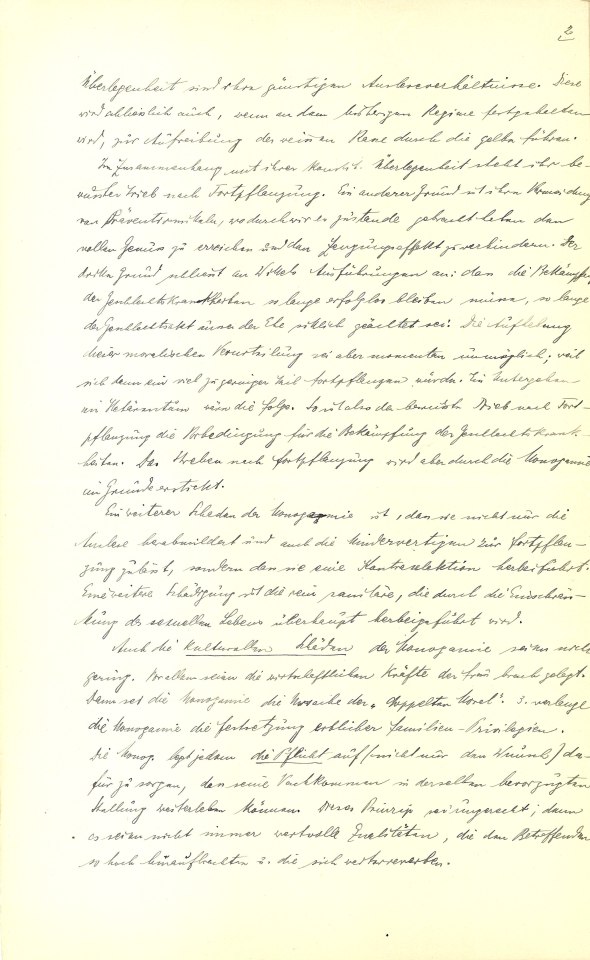 2
Überlegenheit sind ihre günstigen Ausleseverhältnisse. Diese
wird schliesslich auch, wenn an dem bisherigen Regime festgehalten
wird, zur Aufreibung der weissen Rasse durch die gelbe führen.
Im Zusammenhang mit ihrer konstit. Überlegenheit steht ihr be-
wusster Trieb nach Fortpflanzung. Ein anderer Grund ist ihre Vermeidung
von Präventivmitteln, wodurch wir es zustande gebracht haben den
vollen Genuss zu erreichen und den Zeugungseffekt zu verhindern. Der
dritte Grund schliesst an Ausführungen an: dass die Bekämpfung
der Geschlechtskrankheiten so lange erfolglos bleiben müsse, so lange
der Geschlechtsakt ausser der Ehe sittlich geächtet sei. Die Aufhebung
dieser moralischen Verurteilung sei aber momentan unmöglich; weil
sich dann ein viel zu geringer Teil fortpflanzen würde. Ein Untergehen
im Hetärentum wäre die Folge. So ist also der bewusste Trieb nach Fort-
pflanzung die Vorbedingung für die Bekämpfung der Geschlechtskrank-
heiten. Das Streben nach Fortpflanzung wird aber durch die Monogamie
im Grunde erstickt.
Ein weiterer Schaden der Monogamie ist, dass sie nicht nur die
Auslese und auch die Minderwertigen zur Fortpflan-
zung zulässt, sondern dass sie eine Kontraselektion herbeiführt.
Eine weitere Schädigung ist die rein sanitäre, die durch die Einschrän-
kung des sexuellen Lebens überhaupt herbeigeführt wird.
Auch die kulturellen Schäden der Monogamie seien nicht
gering. Vor allem seien die wirtschaftlichen Kräfte der Frau brach gelegt.
Dann sei die Monogamie die Ursache der „doppelten Moral". 3. verlange
die Monogamie die Fortsetzung erblicher Familien-Privilegien.
Die Monog. legt jedem die Pflicht auf (nicht nur den Wunsch) da-
für zu sorgen, dass seine Nachkommen in derselben bevorzugten
Stellung weiterleben können. Dieses Prinzip sei ungerecht; denn
es seien nicht immer wertvolle Qualitäten, die den Betreffenden
so hoch hinaufbrachten u. die sich weitervererben.